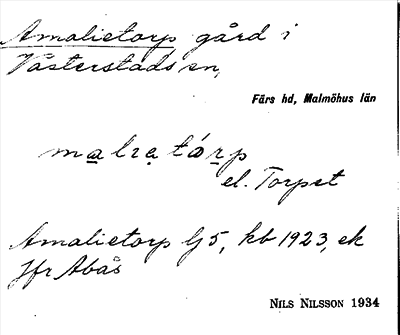 Amalietorp gård i
Västerstads sn,
Färs hd, Malmöhus län
malïatárp
el. Torpet
Amalietorp Gj 5, kb 1923, ek
Jfr Abås
NILS NILSSON 1934